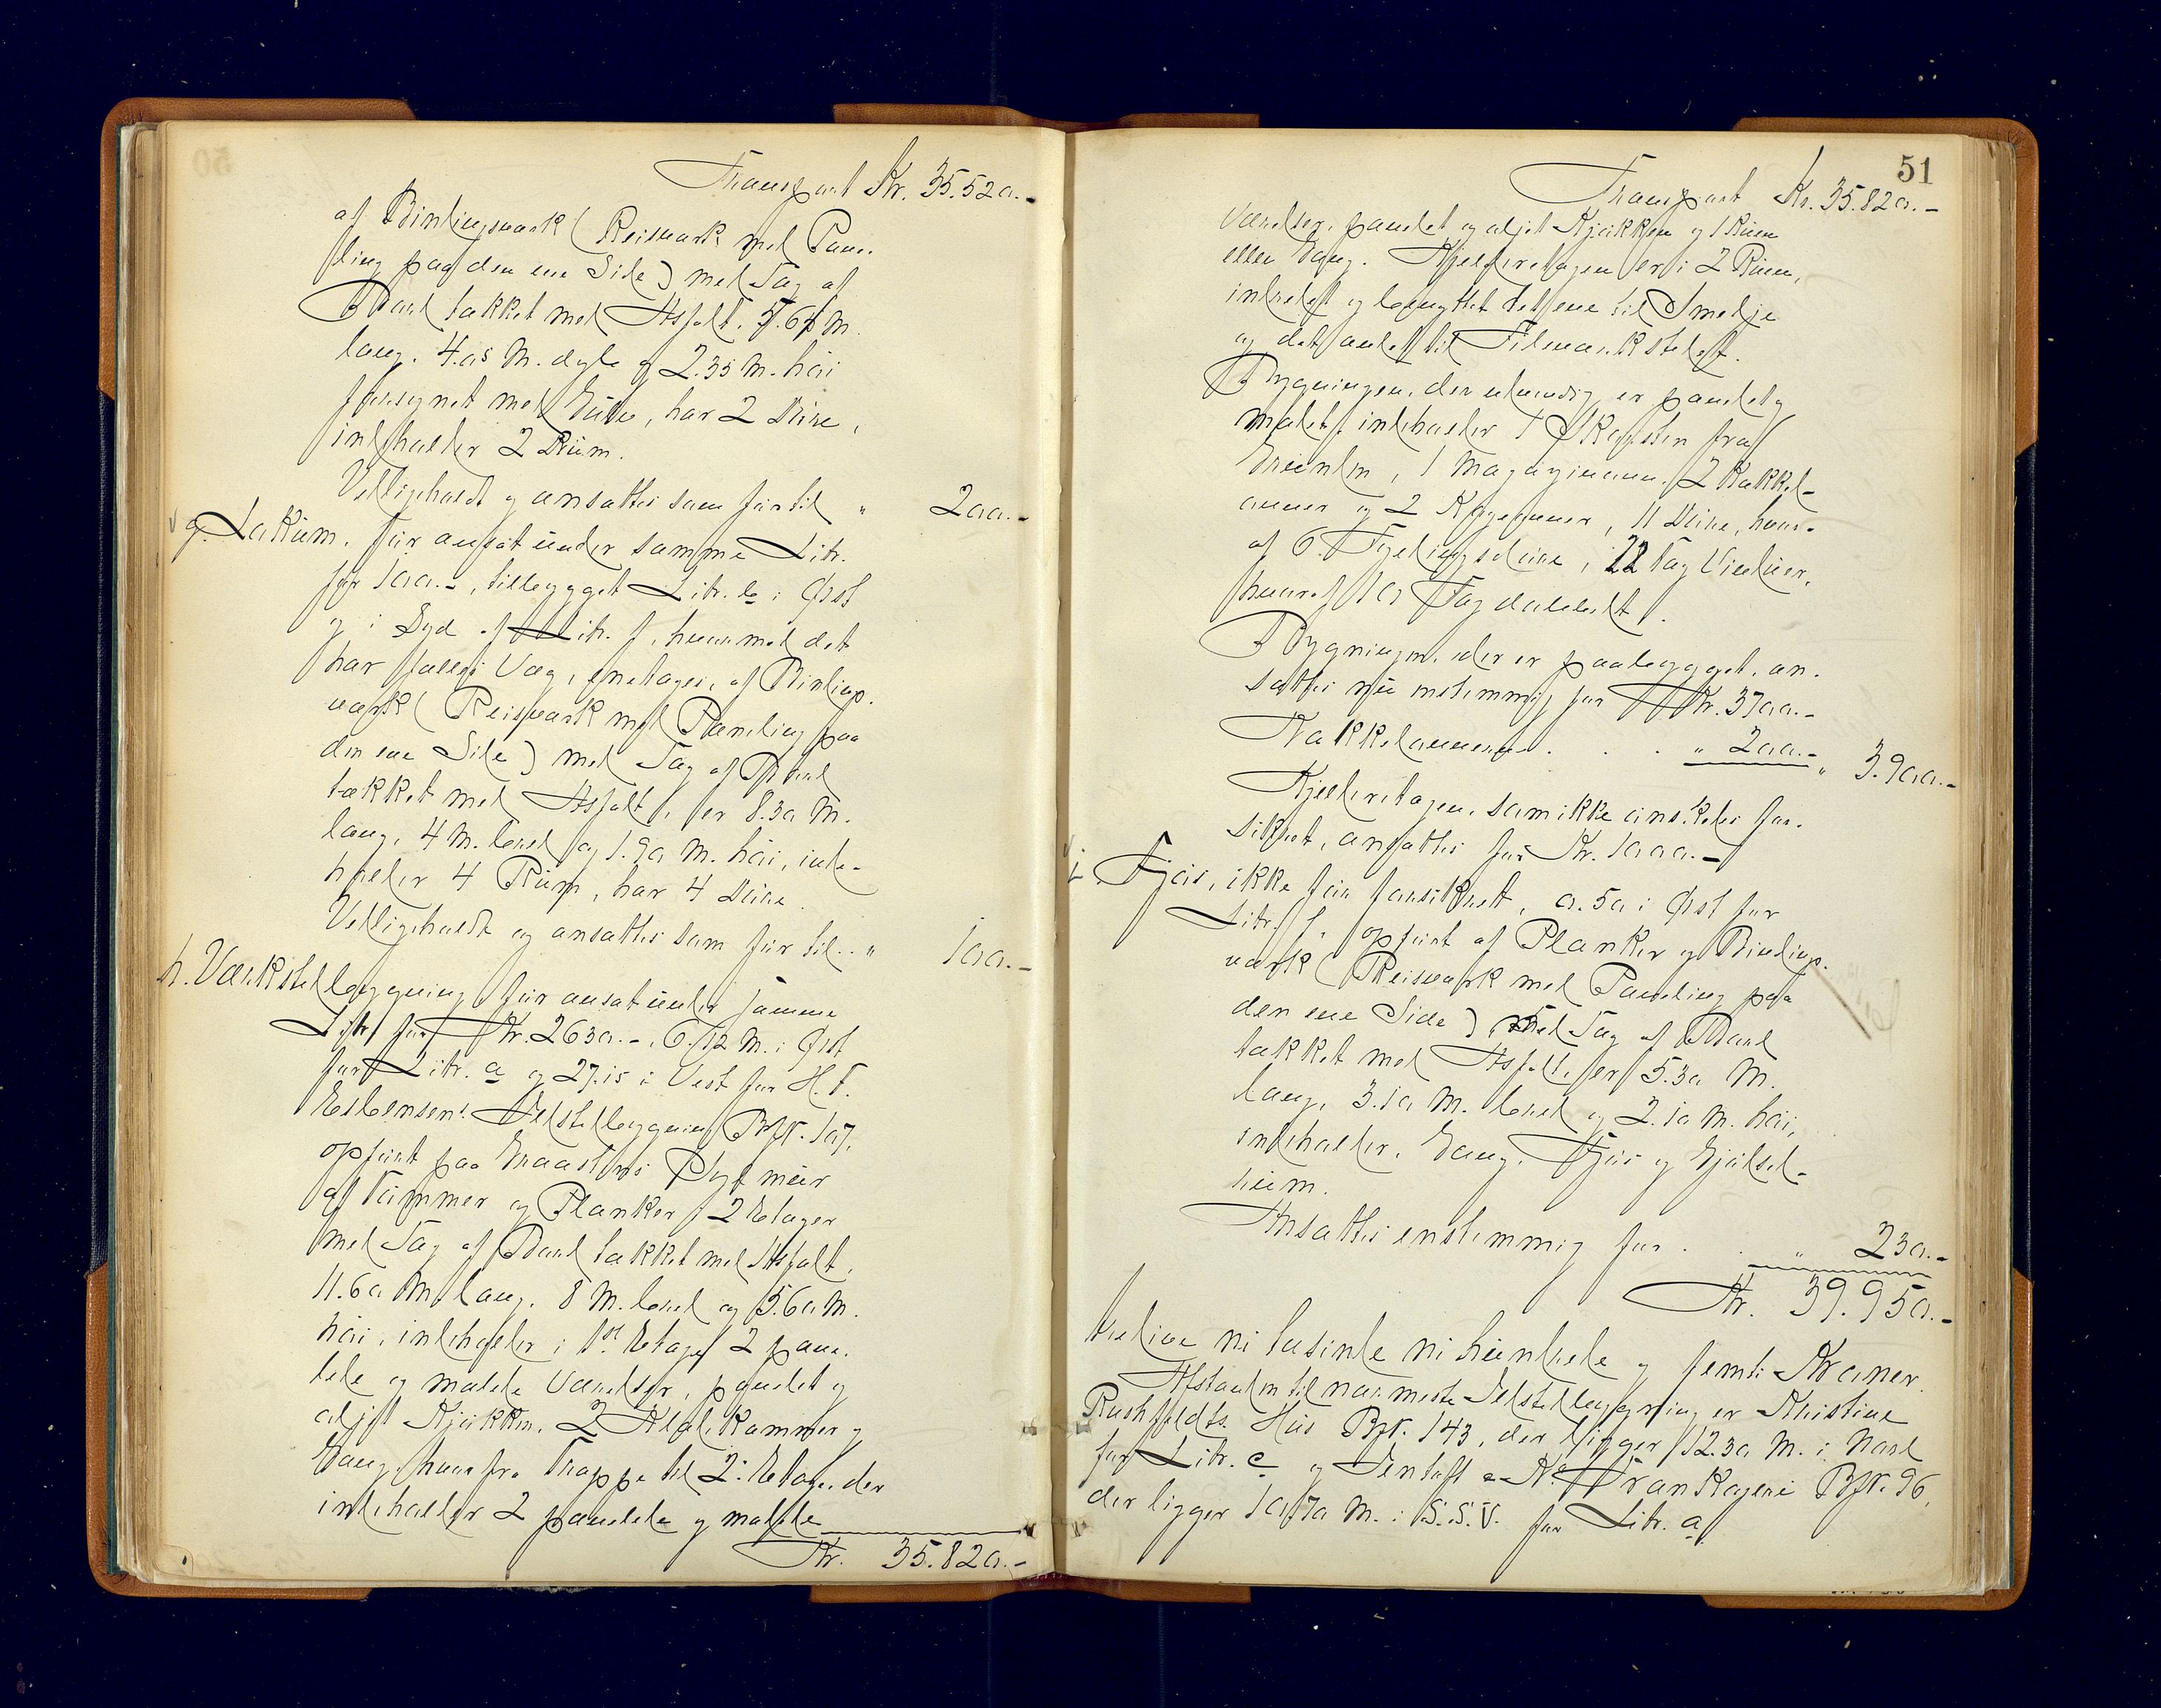 Transport Kr. 35.520.-
af Bindingsværk (Reisværk med Pane-
ling paa den ene Side) med Tag af
Bord tækket med Asfalt. 5.65 M.
lang. 4.05 M. dyb og 2.35 M. høi
forsynet med Gulv, har 2 Døre,
indeholder 2 Rum.
Vedligeholdt og ansattes som før til " 200.-
g. Lokum. før ansat under samme Litr.
for 100.-, tilbygget Litr. b i Øst
og i Syd af Litr. f, hvormed det
har fælles Væg, enetages, af Bindings-
værk (Reisværk med Paneling paa
den ene Side) med Tag af Bord
tækket med Asfalt, er 8.30 M.
lang, 4 M. bred og 1.90 M. høi, inde-
holder 4 Rum, har 4 Døre.
Vedligeholdt og ansattes som før til.. " 100.-
h. Værkstedbygning før ansat under samme
Litr. for Kr. 2630.-, 6.12 M. i Øst
for Litr. a og 27.15 i Vest for H. T.
Esbensens Ildstedbygning B№. 107,
opført paa Graastens Grundmur
af Tømmer og Planker 2 Etager
med Tag af Bord tækket med Asfalt,
11.60 M. lang, 8 M. bred og 5.60 M.
høi, indeholder i 1ste Etage 2 pane-
lede og malede Værelser, panelet og
oljet Kjøkken, 2 Kammer og
Gang, hvorfra Trappe til 2. Etage, der
indeholder 2 panelede og malede
Kr. 35.820.-
51
Transport Kr. 35.820.-
Værelser, panelet og oljet Kjøkken og 1 Rum
eller Gang. Kjelderetagen er i 2 Rum,
indredet og benyttet det ene til Smedje
og det andet til
Bygningen, der udvendig er panelet og
malet, indeholder 1 Skorsten fra
Grunden, 1 Magazinovn, 2 Kakkel-
ovner og 2 Kogeovner, 11 Døre, hvor-
af 6 Fyldingsdøre, 22 Fag Vinduer,
hvoraf 10 Fag dobbelt.
Bygningen, der er paabygget, an-
sattes nu enstemmig for Kr. 3700.-
Kakkelovnene . . . " 200.- " 3.900.-
Kjelderetagen, som ikke ønskedes for-
sikret, ansattes for Kr. 1000.-
i. Fjøs, ikke før forsikret, 0.50 i Øst for
Litr. f, opført af Planker og Bindings-
værk (Reisværk med Paneling paa
den ene Side) med Tag af Bord
tækket med Asfalt, er 5.30 M.
lang, 3.10 M. bred og 2.10 M. høi,
indeholder, Gang, Fjøs og Gjødsel-
rum.
Ansattes enstemmig for . . " 230.-
Kr. 39.950.-
tredive ni tusinde ni hundrede og femti Kroner.
Afstanden til nærmeste Ildstedbygning er Kristine
Rushfeldts Hus B№. 143, der ligger 12.30 M. i Nord
for Litr. c og Trankogeri B№. 96,
der ligger 10.70 M. i S.S.V. for Litr. a.